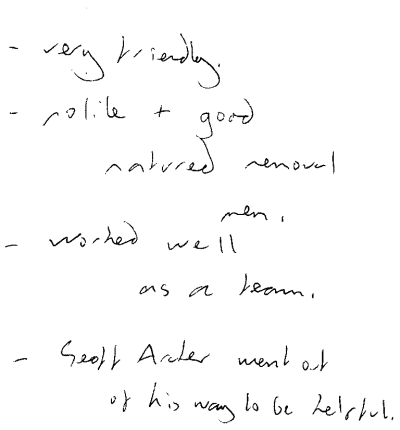 - very friendly.
- polite + good
natured removal
men.
- worked well
as a team.
- Geoff Archer went out
of his way to be helpful.